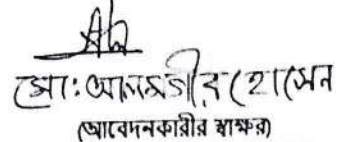 মো: আলমগীর হোসেন
(আবেদনকারীর স্বাক্ষর)